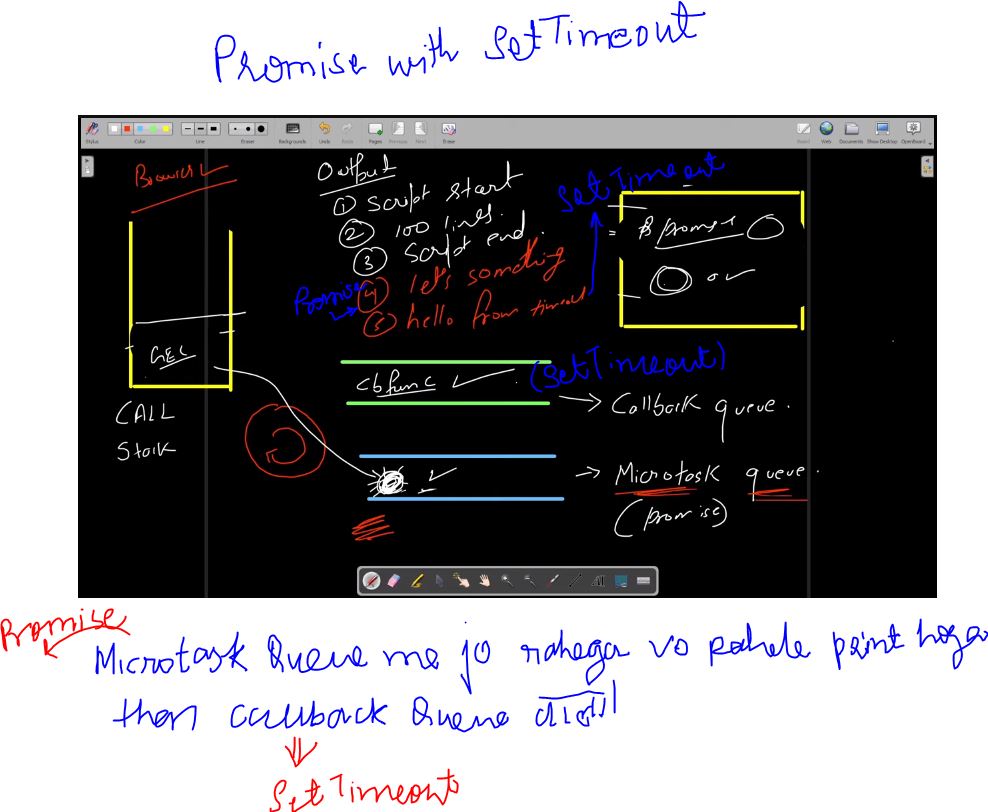 Promise with SetTimeout
Stylus Color Line Eraser Backgrounds Undo Redo Pages Previous Next Erase Board Web Documents Show Desktop OpenBoard
Output
① Script start
② 100 lines.
③ Script end.
Promise ④ let's something
⑤ hello from timeout
SetTimeout
promise
GEC
CALL
Stack
cb func (SetTimeout)
→ Callback queue.
→ Microtask queue.
(promise)
Promise
Microtask Queue me jo rahega vo pahele print hoga
then callback Queue वाला
SetTimeout